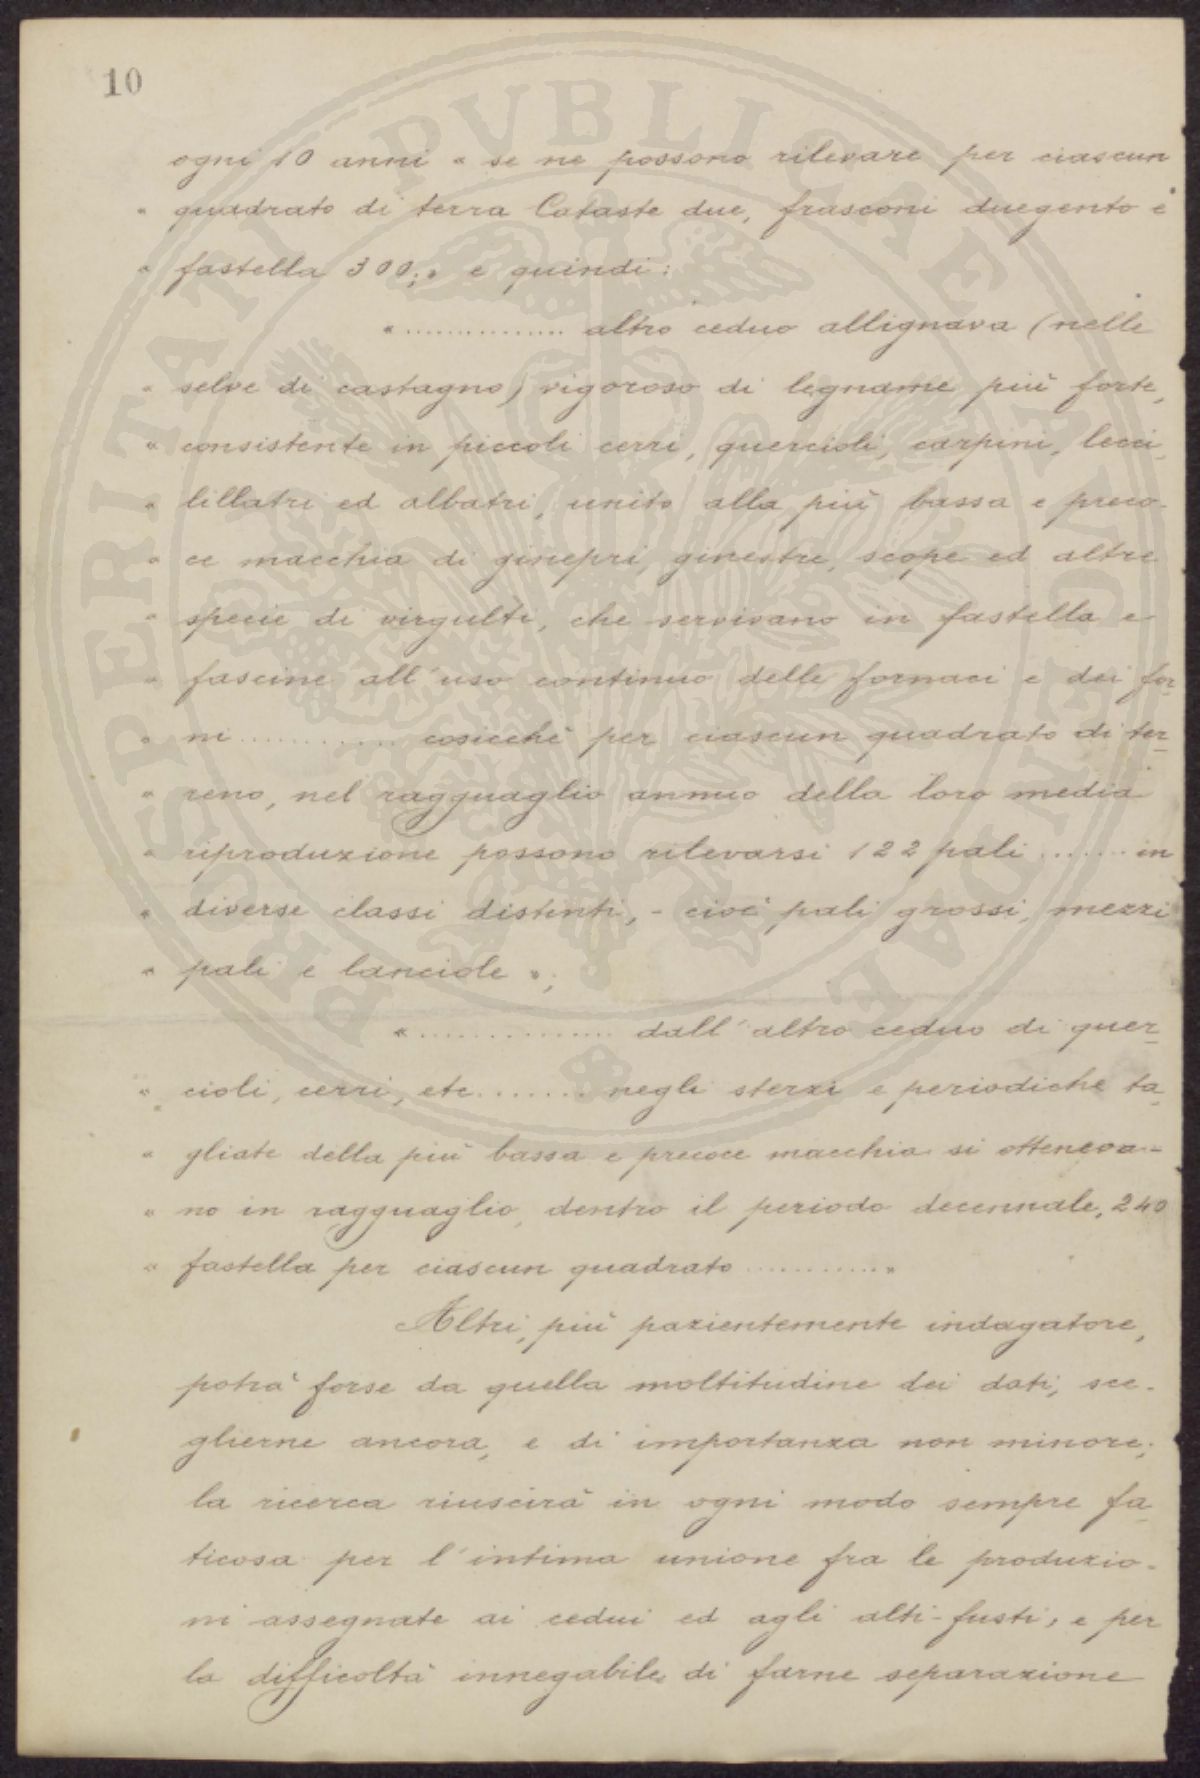 10
ogni 10 anni « se ne possono rilevare per ciascun
« quadrato di terra Cataste due, frasconi duegento e
« fastella 300;» e quindi:
« .............. altro ceduo allignava (nelle
« selve di castagno) vigoroso di legname più forte,
« consistente in piccoli cerri, quercioli, carpini, lecci,
« lillatri ed albatri, unito alla più bassa e preco-
« ce macchia di ginepri, ginestre, scope ed altre
« specie di virgulti, che servivano in fastella e
« fascine all'uso continuo delle fornaci e dei for-
« ni ............ cosicchè per ciascun quadrato di ter-
« reno, nel ragguaglio annuo della loro media
« riproduzione possono rilevarsi 122 pali ....... in
« diverse classi distinti, - cioè pali grossi, mezzi
« pali e lanciole »;
« .............. dall'altro ceduo di quer-
« cioli, cerri, etc ....... negli sterzi e periodiche ta-
« gliate della più bassa e precoce macchia si otteneva-
« no in ragguaglio, dentro il periodo decennale, 240
« fastella per ciascun quadrato ........... »
Altri, più pazientemente indagatore,
potrà forse da quella moltitudine dei dati, sce-
glierne ancora, e di importanza non minore;
la ricerca riuscirà in ogni modo sempre fa-
ticosa per l'intima unione fra le produzio-
ni assegnate ai cedui ed agli alti-fusti, e per
la difficoltà innegabile di farne separazione
PROSPERITATI PVBLICAE AVGENDAE